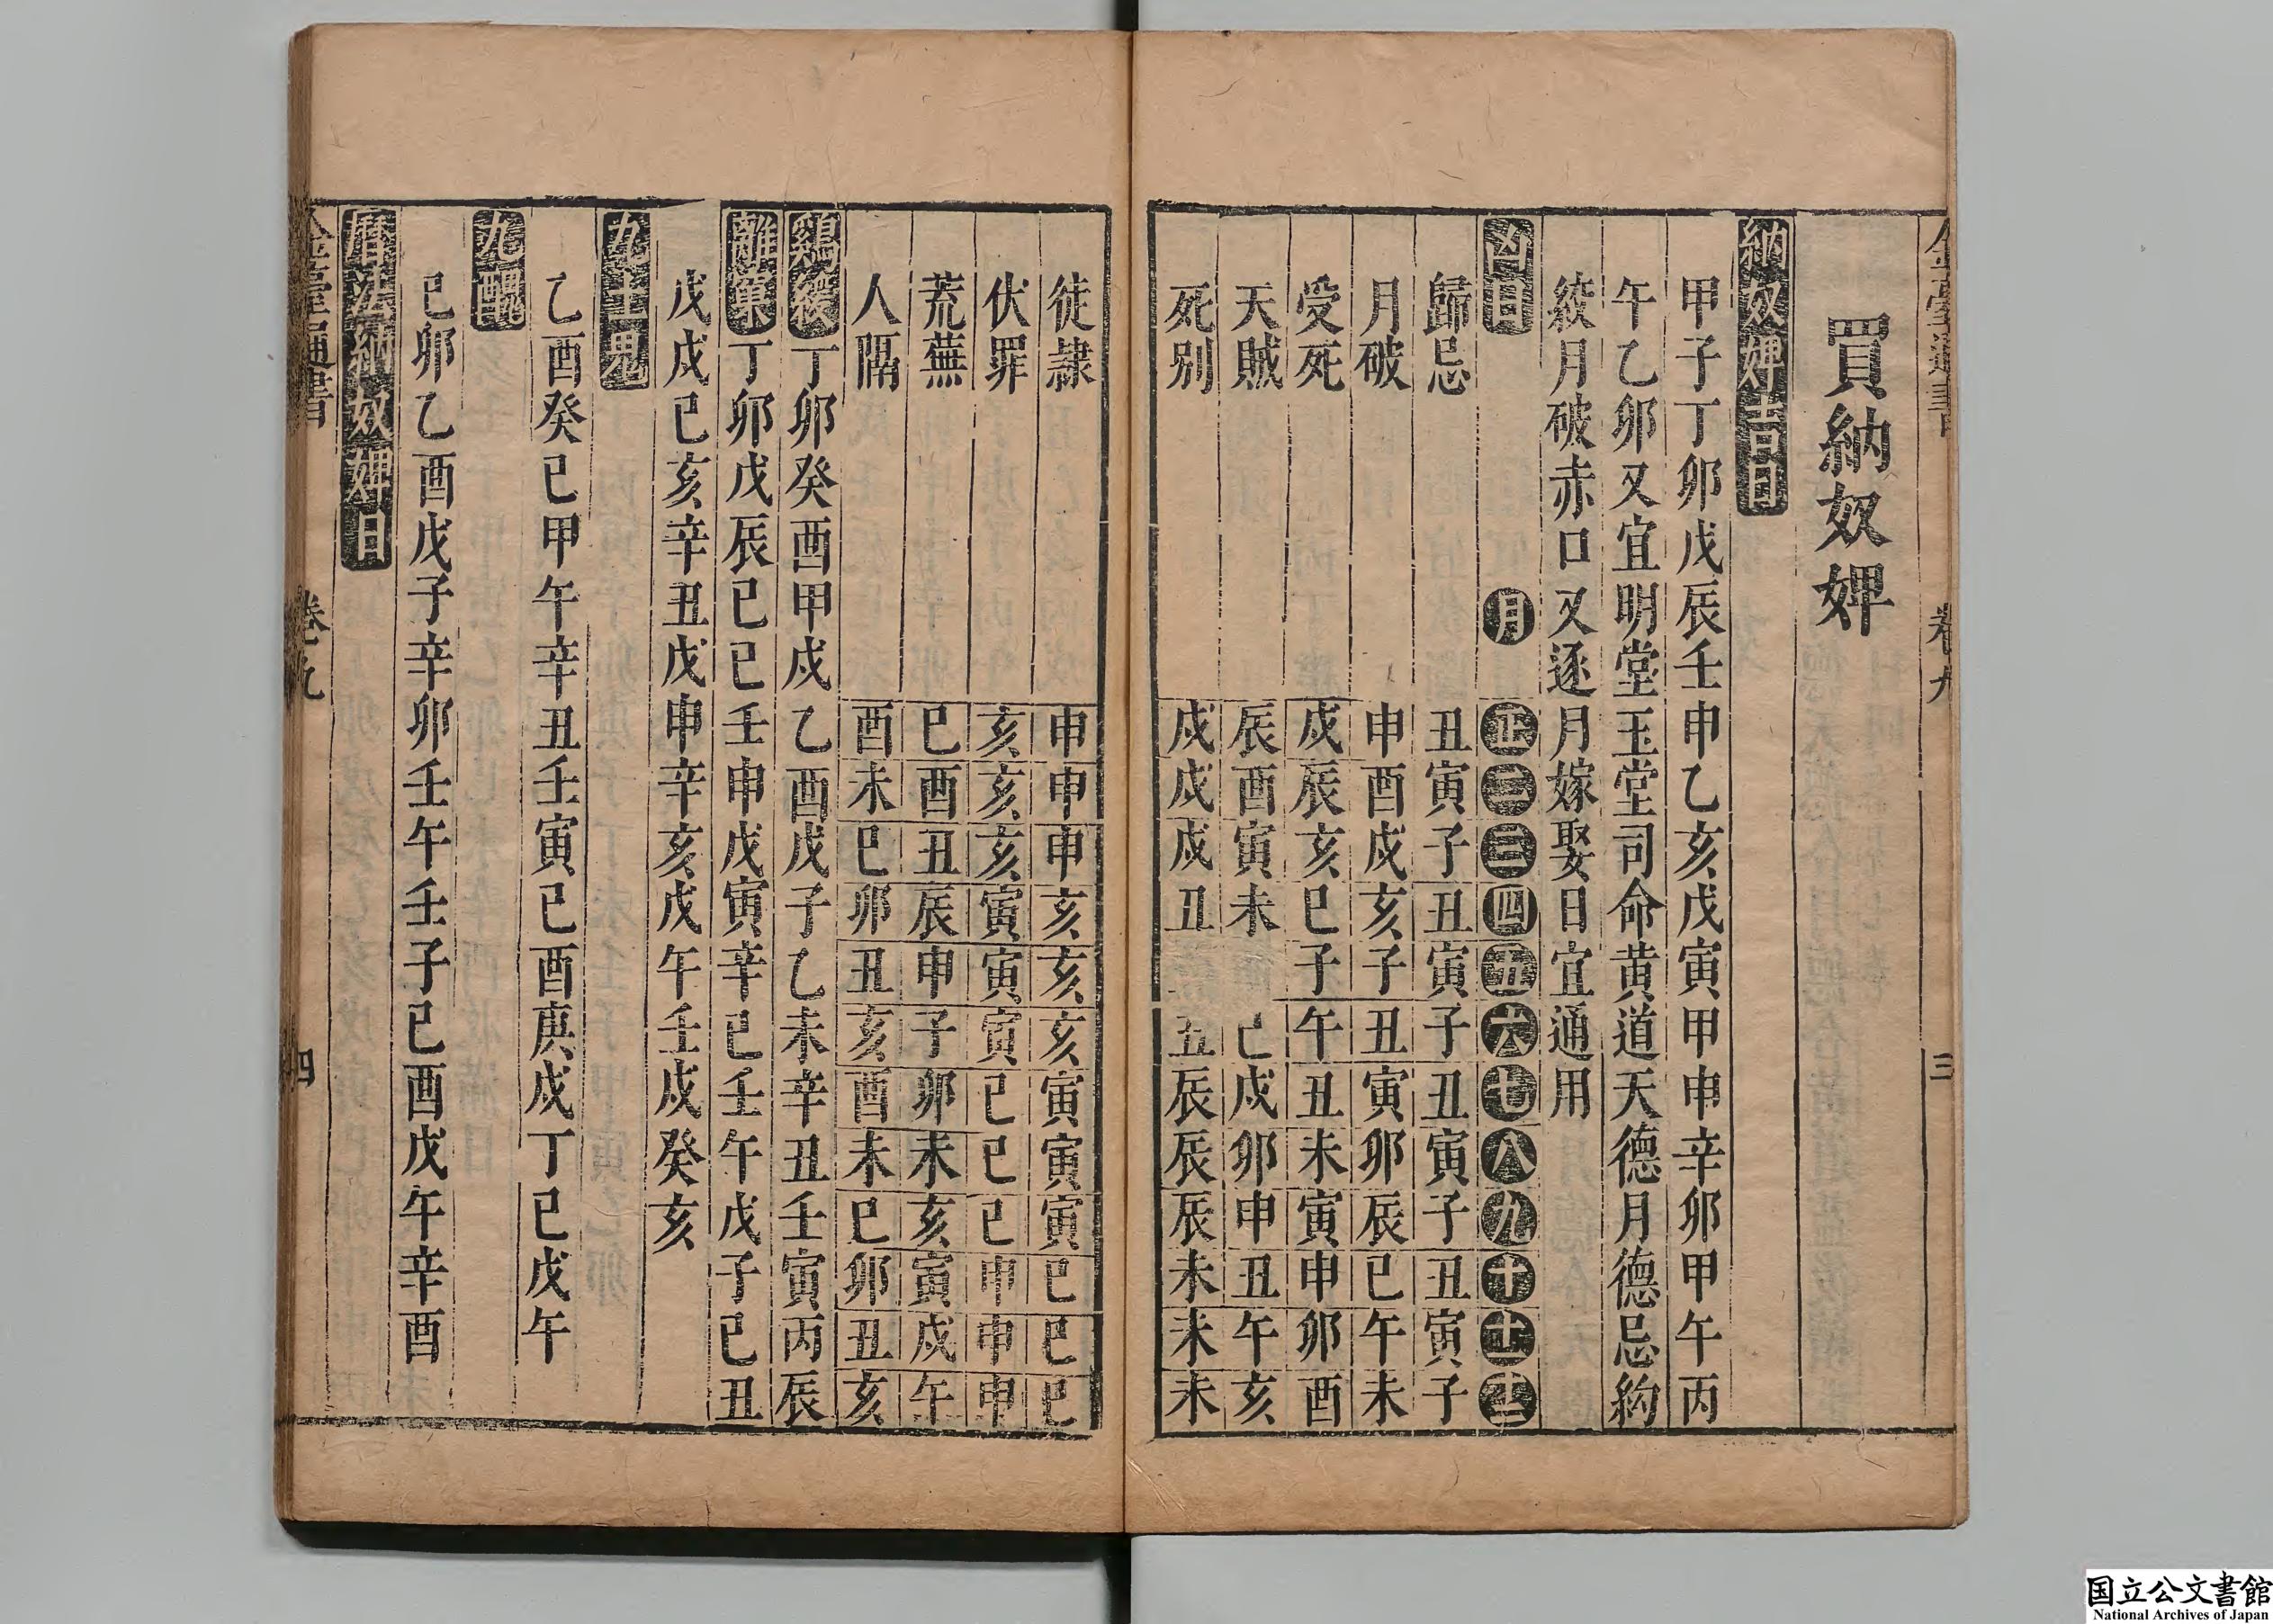 卷九
三
買納奴婢
納奴婢吉日
甲子丁卯戊辰壬申乙亥戊寅甲申辛卯甲午丙
午乙卯又宜明堂玉堂司命黄道天德月德忌約
絞月破赤口又逐月嫁娶日宜通用
凶日 月 正 二 三 四 五 六 七 八 九 十 十一 十二
歸忌 丑寅子丑寅子丑寅子丑寅子
月破 申酉戌亥子丑寅卯辰巳午未
受死 戌辰亥巳子午丑未寅申卯酉
天賊 辰酉寅未 巳戌卯申丑午亥
死别 戌戌戌丑 丑辰辰辰未未未
徒隷 申申申亥亥亥寅寅寅巳巳巳
伏罪 亥亥亥寅寅寅巳巳巳申申申
荒蕪 巳酉丑辰申子卯未亥寅戌午
人隔 酉未巳卯丑亥酉未巳卯丑亥
鷄緩 丁卯癸酉甲戌乙酉戊子乙未辛丑壬寅丙辰
離巢 丁卯戊辰巳巳壬申戊寅辛巳壬午戊子巳丑
戊戌巳亥辛丑戊申辛亥戊午壬戌癸亥
九土鬼
乙酉癸巳甲午辛丑壬寅巳酉庚戌丁巳戊午
九醜
巳卯乙酉戊子辛卯壬午壬子巳酉戊午辛酉
曆法納奴婢日
通書
卷九
四
国立公文書館
National Archives of Japan